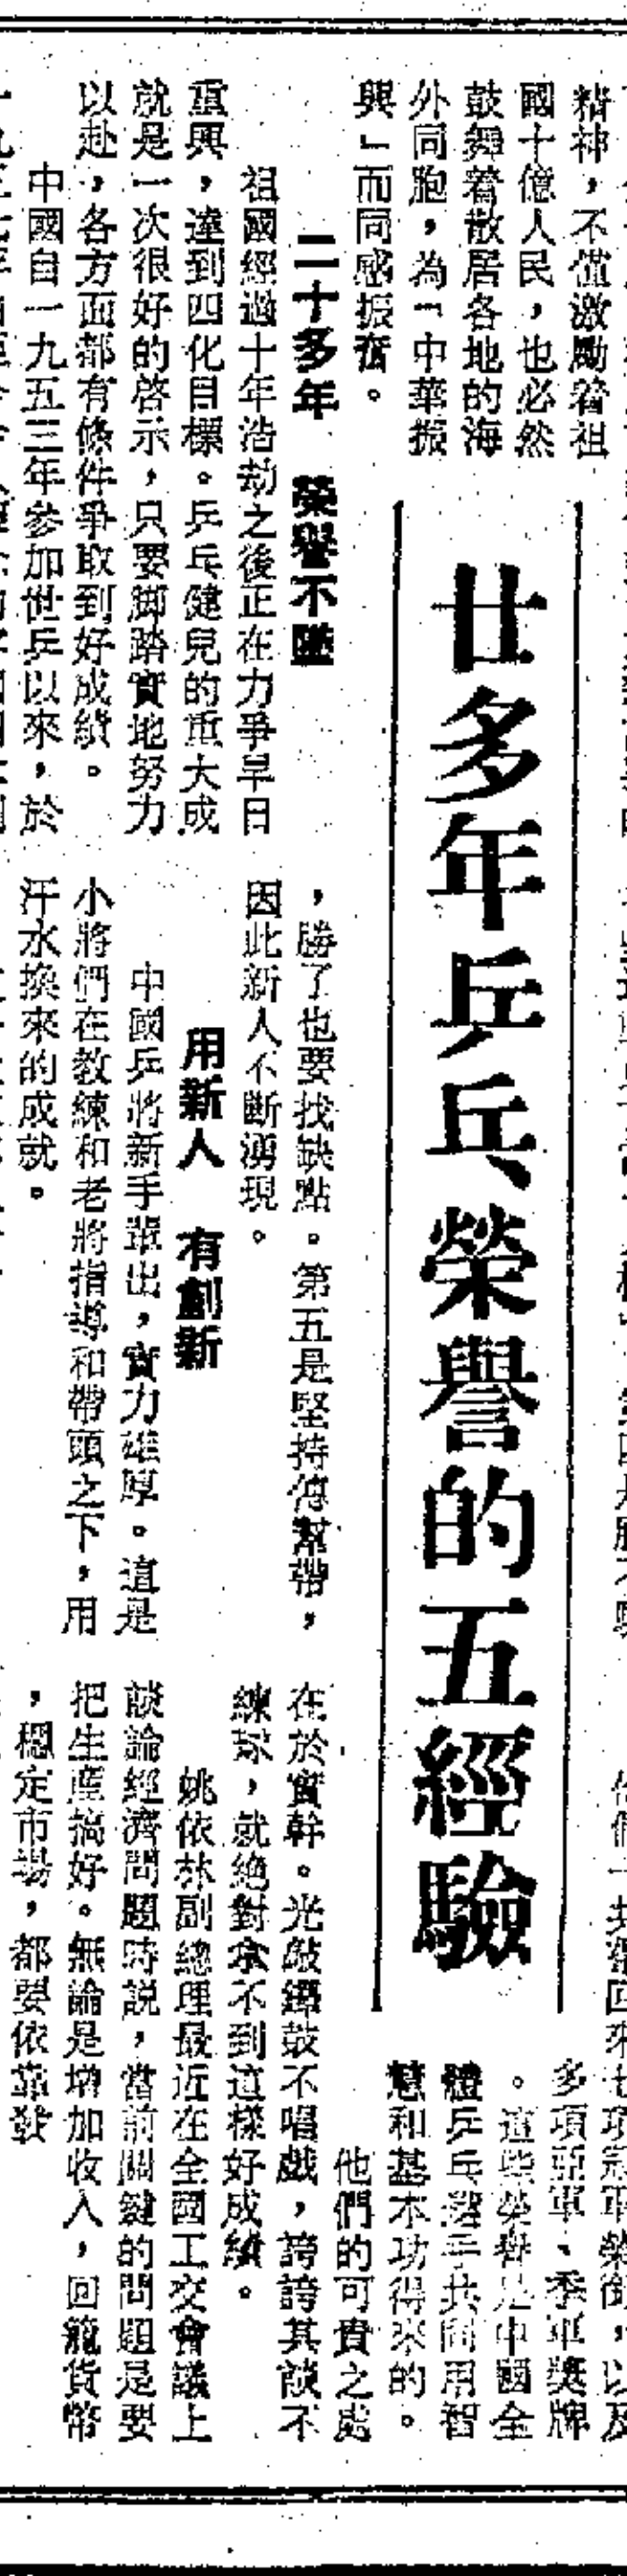 廿多年乒乓榮譽的五經驗
精神，不僅激勵着祖
國十億人民，也必然
鼓舞着散居各地的海
外同胞，為「中華振
興」而同感振奮。
二十多年　榮譽不墜
祖國經過十年浩劫之後正在力爭早日
重興，達到四化目標。乒乓健兒的重大成
就是一次很好的啓示，只要脚踏實地努力
以赴，各方面都有條件爭取到好成績。
中國自一九五三年參加世乒以來，於
，勝了也要找缺點。第五是堅持傳幫帶，
因此新人不斷湧現。
用新人　有創新
中國乒將新手輩出，實力雄厚。這是
小將們在教練和老將指導和帶頭之下，用
汗水換來的成就。
多項亞軍、季軍獎牌
。這些榮譽是中國全
體乒乓選手共同用智
慧和基本功得來的。
他們的可貴之處
在於實幹。光敲鑼鼓不唱戲，誇誇其談不
練球，就絶對拿不到這樣好成績。
姚依林副總理最近在全國工交會議上
談論經濟問題時説，當前關鍵的問題是要
把生產搞好。無論是增加收入，回籠貨幣
，穩定市場，都要依靠發